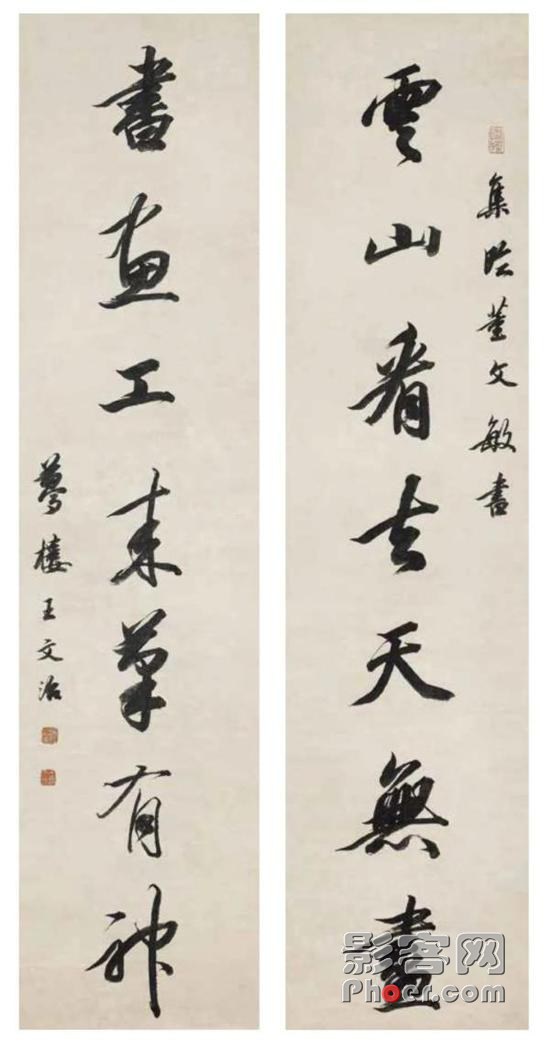 集臨董文敏書
雲山看去天無盡
書畫工來筆有神
夢樓王文治
影客网
Phocr.com